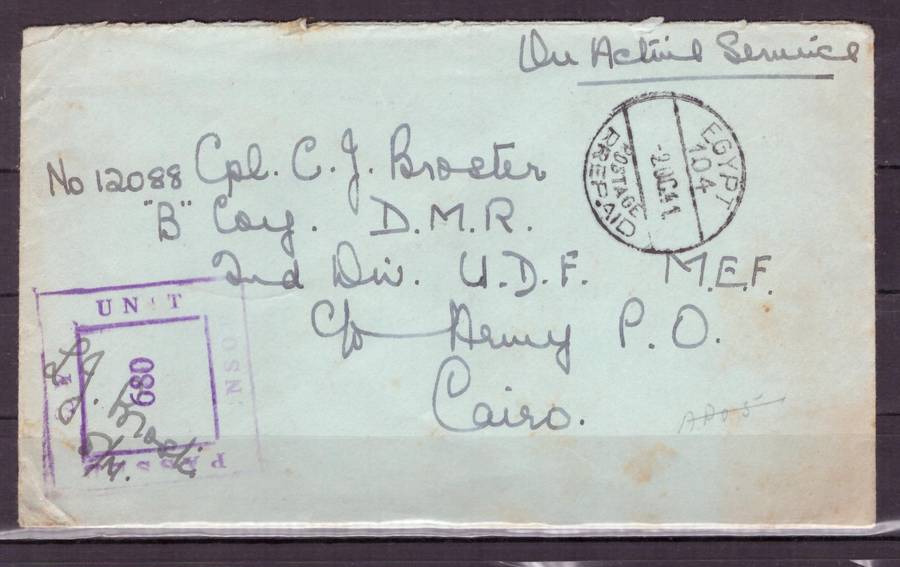 On Active Service
EGYPT
104
POSTAGE
PREPAID
No 12088 Cpl. C. J. Brocter
"B" Coy. D.M.R.
2nd Div. U.D.F. M.E.F.
c/o Army P.O.
Cairo.
APO 5
UNIT
680